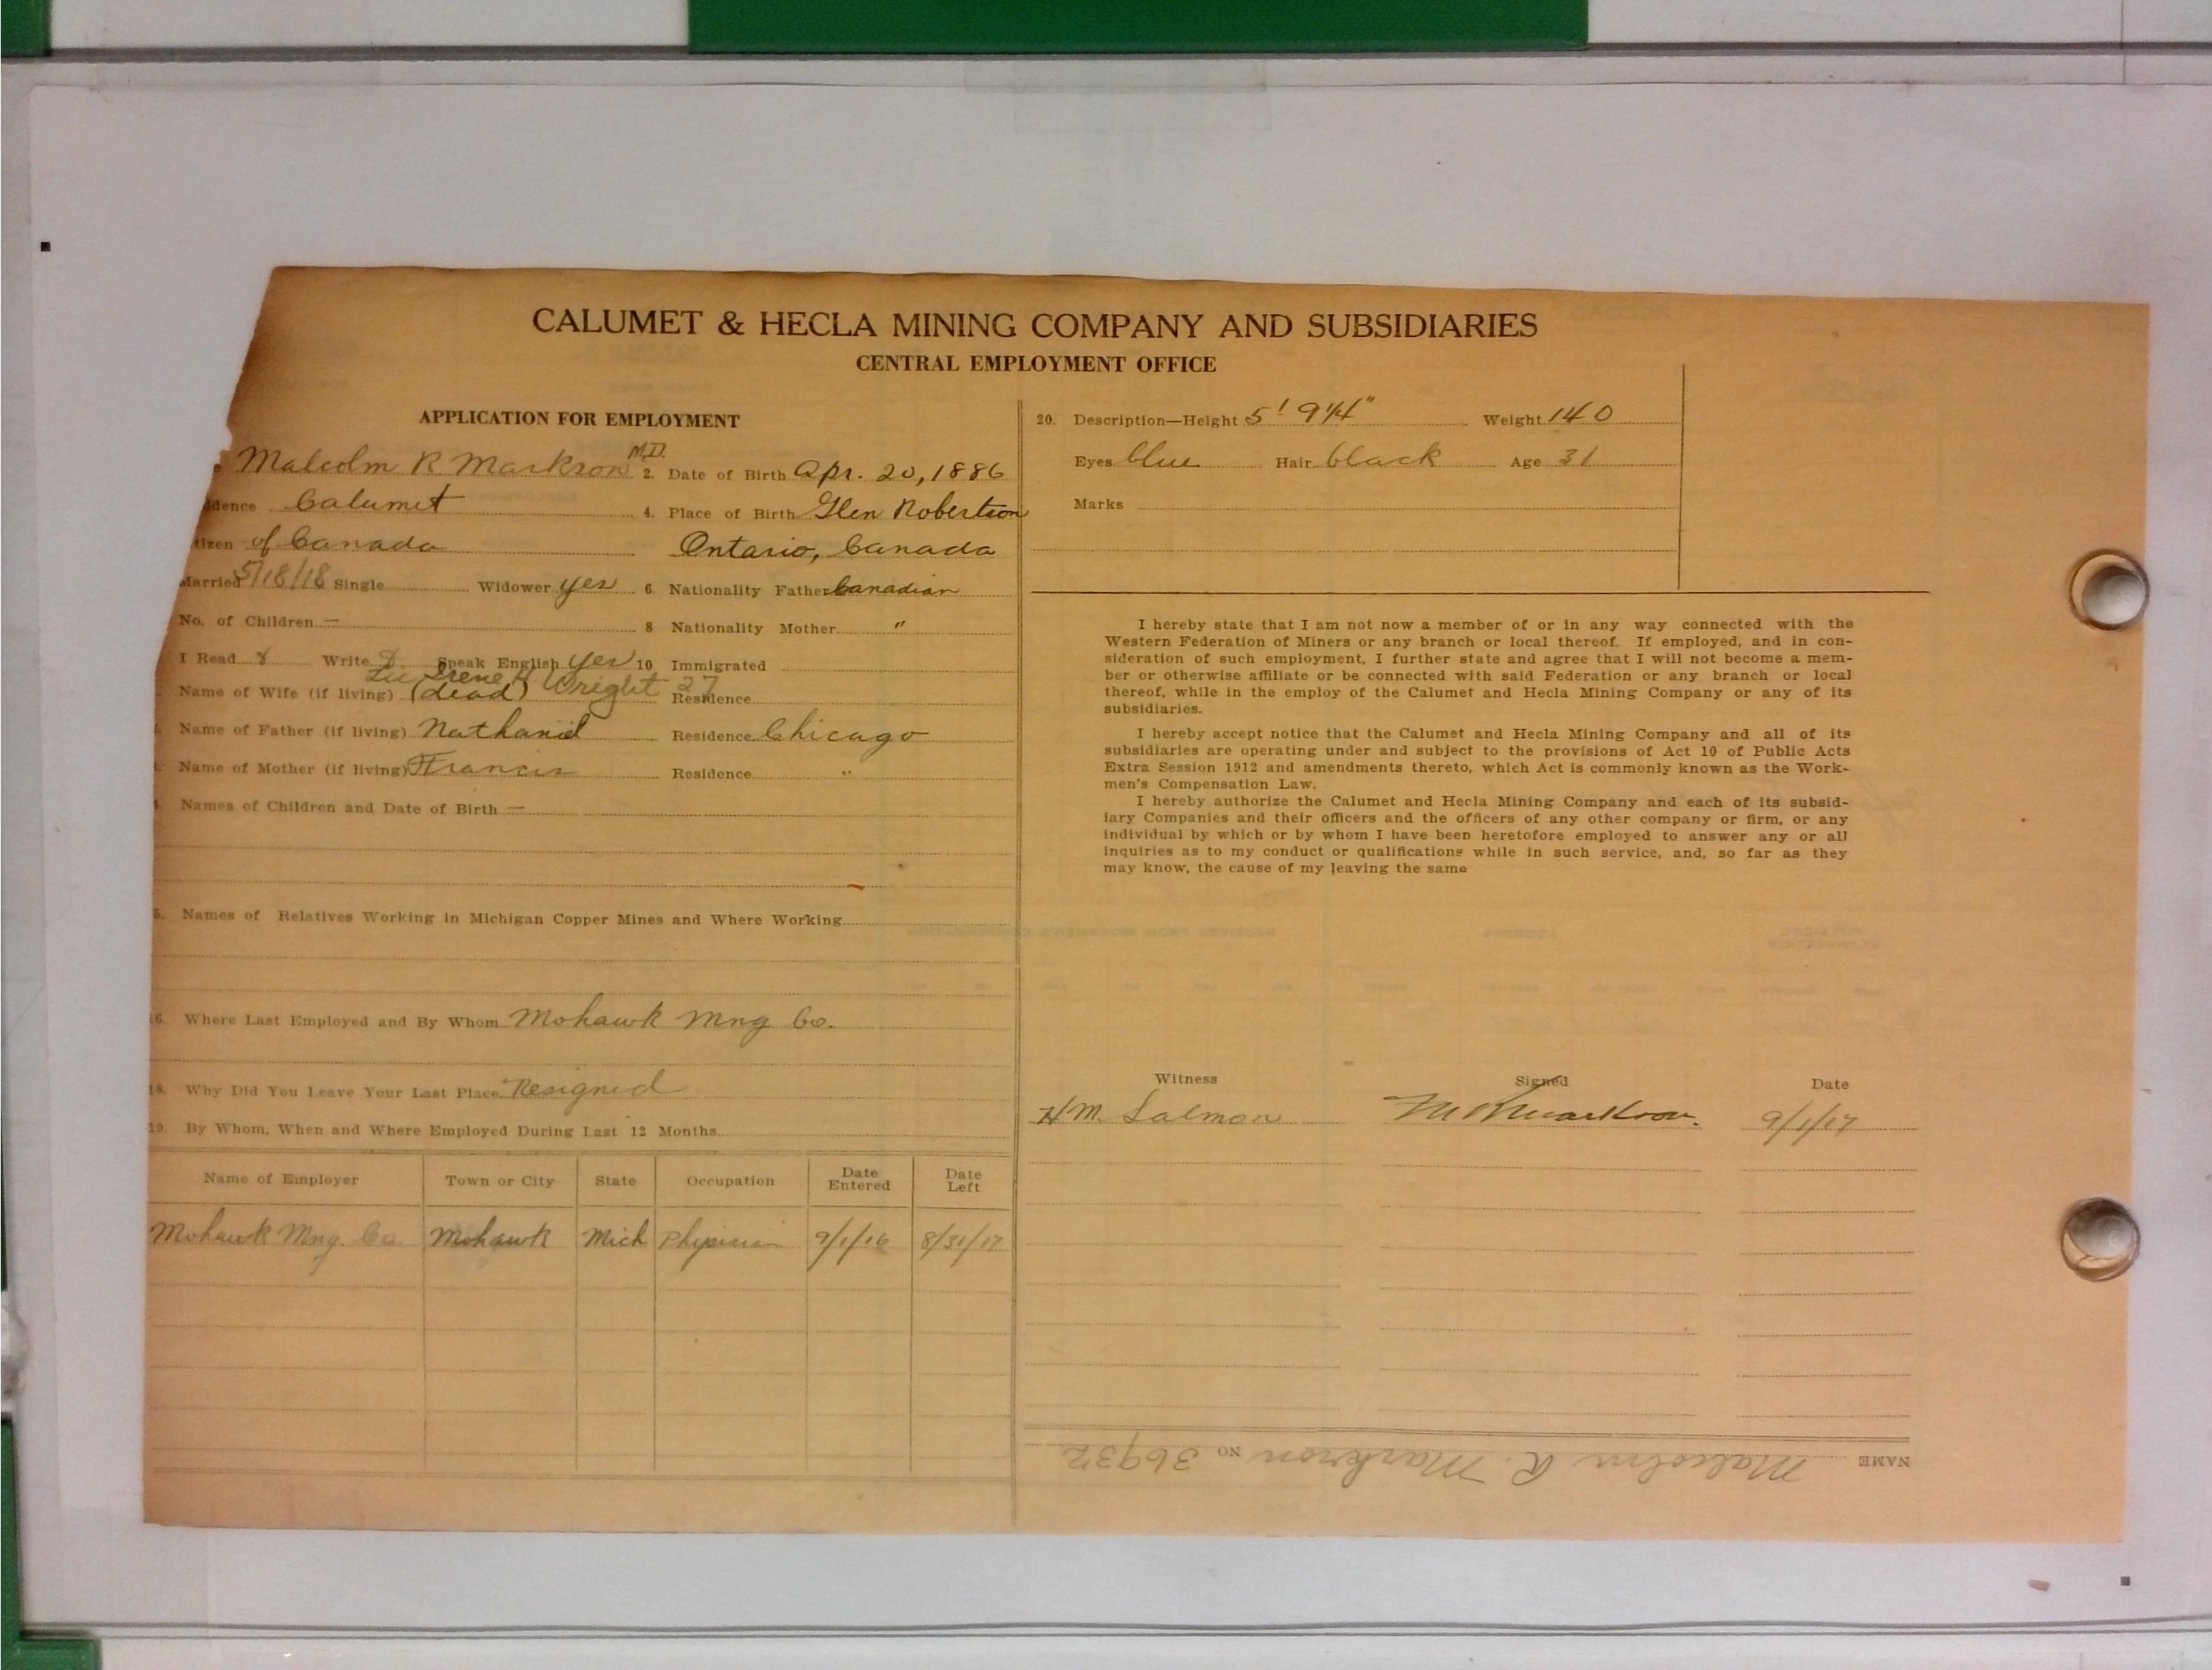 CALUMET & HECLA MINING COMPANY AND SUBSIDIARIES
CENTRAL EMPLOYMENT OFFICE
APPLICATION FOR EMPLOYMENT
Malcolm R Markson M.D. 2. Date of Birth Apr. 20, 1886
dence Calumet 4. Place of Birth Glen Robertson
tizen of Canada Ontario, Canada
Married 5/18/18 Single Widower yes 6. Nationality Father Canadian
No. of Children — 8 Nationality Mother "
I Read Write Speak English yes 10 Immigrated
Irene H Wright 27
Name of Wife (if living) (dead) Residence
Name of Father (if living) Nathaniel Residence Chicago
Name of Mother (if living) Francis Residence "
Names of Children and Date of Birth —
5. Names of Relatives Working in Michigan Copper Mines and Where Working
16. Where Last Employed and By Whom Mohawk Mng Co.
18. Why Did You Leave Your Last Place Resigned
19. By Whom, When and Where Employed During Last 12 Months
Name of Employer Town or City State Occupation Date Entered Date Left
Mohawk Mng. Co Mohawk Mich Physician 9/1/16 8/31/17
20. Description—Height 5' 9¼" Weight 140
Eyes blue Hair black Age 31
Marks
I hereby state that I am not now a member of or in any way connected with the
Western Federation of Miners or any branch or local thereof. If employed, and in con-
sideration of such employment, I further state and agree that I will not become a mem-
ber or otherwise affiliate or be connected with said Federation or any branch or local
thereof, while in the employ of the Calumet and Hecla Mining Company or any of its
subsidiaries.
I hereby accept notice that the Calumet and Hecla Mining Company and all of its
subsidiaries are operating under and subject to the provisions of Act 10 of Public Acts
Extra Session 1912 and amendments thereto, which Act is commonly known as the Work-
men's Compensation Law.
I hereby authorize the Calumet and Hecla Mining Company and each of its subsid-
iary Companies and their officers and the officers of any other company or firm, or any
individual by which or by whom I have been heretofore employed to answer any or all
inquiries as to my conduct or qualifications while in such service, and, so far as they
may know, the cause of my leaving the same
Witness Signed Date
H M. Salmon M R Markson. 9/1/17
NAME Malcolm R. Markson NO 36932